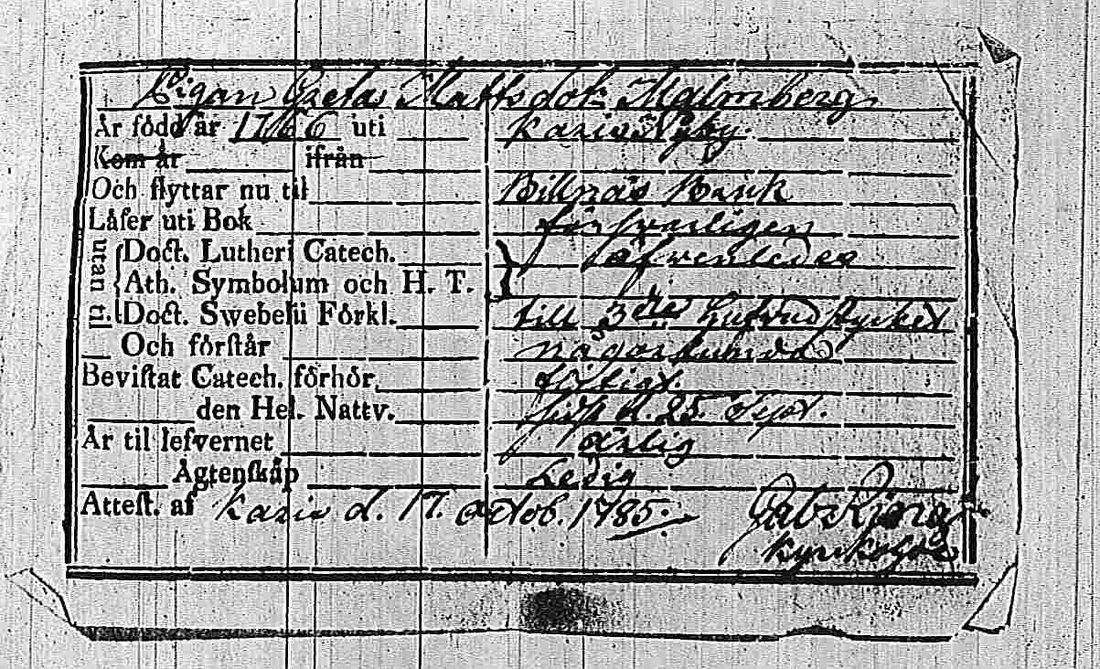 Pigan Greta Matts dotr Malmberg
År född år 1766 uti Karis Nyby.
Kom år ifrån
Och flyttar nu til Billnäs Bruk
Låſer uti Bok förſvarligen
utan til {Doct. Lutheri Catech. äfvenledes
Ath. Symbolum och H. T.
Doct. Swebelii Förkl. till 3die Hufvudſtycket
Och förſtår någorlunda
Beviſtat Catech. förhör flitigt.
den Hel. Nattv. ſidſt d. 25. Sept.
År til lefvernet ärlig
Ägtenſkåp Ledig
Atteſt. af Karis d. 17. Octob. 1785. Gab. Ring